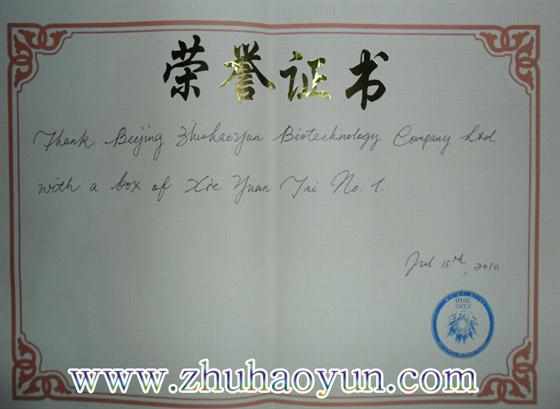 荣誉证书
Thank Beijing Zhuhaoyun Biotechnology Company Ltd.
with a box of Xie Yuan Tai No. 1.
Jul 15th, 2010.
2010
EXPO
www.zhuhaoyun.com